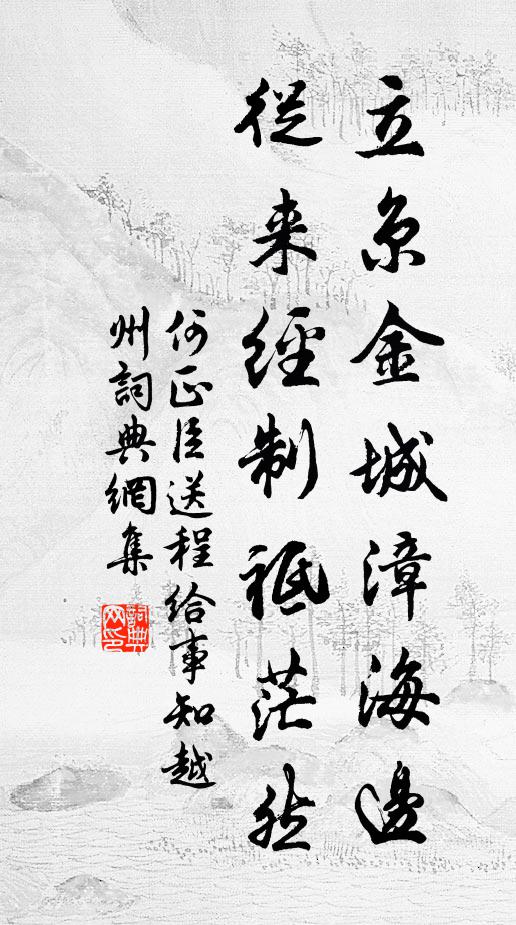 立京金城漳海邊
從来經制祗茫然
何正臣送程給事知越
州詞典網集
詞典
网印